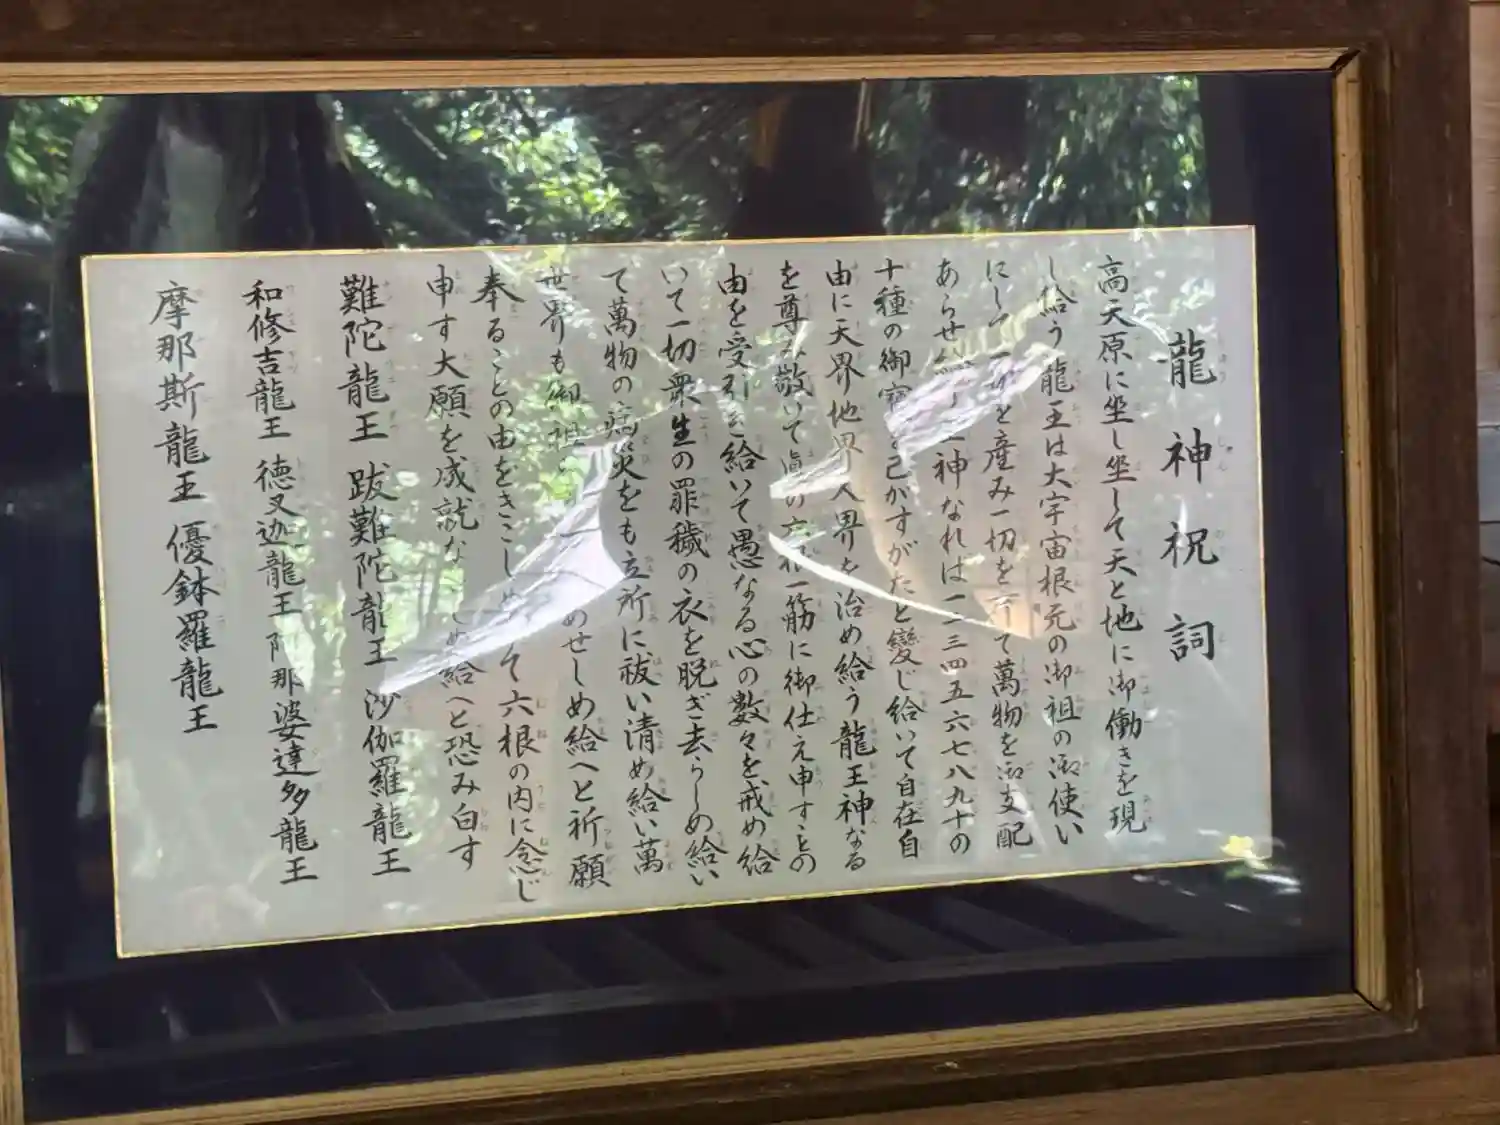 龍神祝詞
高天原に坐し坐して天と地に御働きを現
し給う龍王は大宇宙根元の御祖の御使い
にして一切を産み一切を育て萬物を御支配
あらせ給う王神なれば一二三四五六七八九十の
十種の御寶を己がすがたと變じ給いて自在自
由に天界地界人界を治め給う龍王神なる
を尊み敬いて眞の六根一筋に御仕え申すことの
由を受引き給いて愚なる心の数々を戒め給
いて一切衆生の罪穢の衣を脱ぎ去らしめ給い
て萬物の病災をも立所に祓い清め給い萬
世界も御祖の めせしめ給へと祈願
奉ることの由をきこしめして六根の内に念じ
申す大願を成就なさしめ給へと恐み白す
難陀龍王 跋難陀龍王 沙伽羅龍王
和修吉龍王 徳叉迦龍王 阿那婆達多龍王
摩那斯龍王 優鉢羅龍王